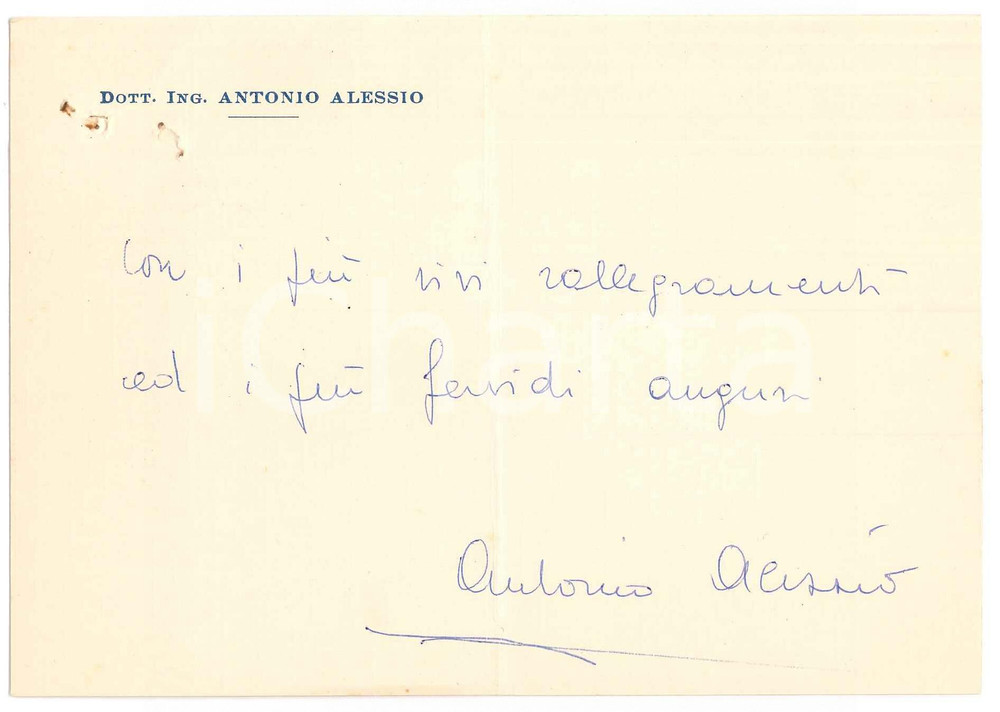 Dott. Ing. ANTONIO ALESSIO
Con i più vivi rallegramenti
ed i più fervidi auguri
Antonio Alessio
iCharta